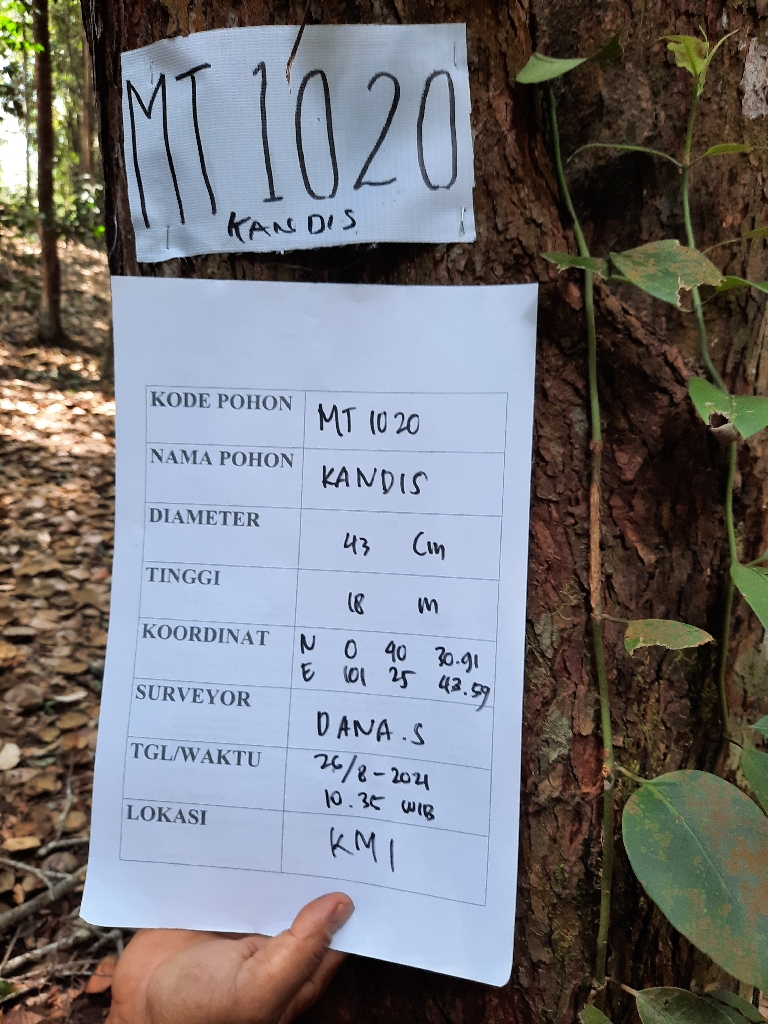 MT 1020
KANDIS
KODE POHON MT 1020
NAMA POHON KANDIS
DIAMETER 43 Cm
TINGGI 18 m
KOORDINAT N 0 40 30.91
E 101 25 43.59
SURVEYOR DANA.S
TGL/WAKTU 26/8-2021
10.35 WIB
LOKASI KM1